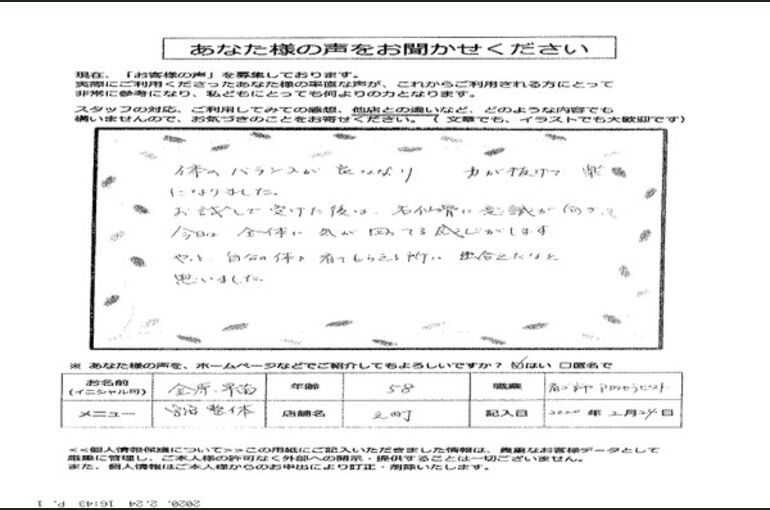 あなた様の声をお聞かせください
現在、「お客様の声」を募集しております。
実際にご利用くださったあなた様の率直な声が、これからご利用される方にとって
非常に参考になり、私どもにとっても何よりの力となります。
スタッフの対応、ご利用してみての感想、他店との違いなど、どのような内容でも
構いませんので、お気づきのことをお寄せください。（ 文章でも、イラストでも大歓迎です）
体のバランスが良くなり 力が抜けて 楽
になりました。
お試しで受けた後は、右仙骨に意識が向き、
今日は 全体に 気が 回ってる 感じがします
やっと 自分の体を 看てもらえる所に 出合えたなと
思いました。
※ あなた様の声を、ホームページなどでご紹介してもよろしいですか？ ☑はい □匿名で
お名前
(イニシャル可) 年齢 58 職業
メニュー 整体 店舗名 元町 記入日 2020 年 2月 24日
<<個人情報保護について>>この用紙にご記入いただきました情報は、貴重なお客様データとして
厳重に管理し、ご本人様の許可なく外部への開示・提供することは一切ございません。
また、個人情報はご本人様からのお申出により訂正・削除いたします。
2020. 2.24 16:43 P. 1